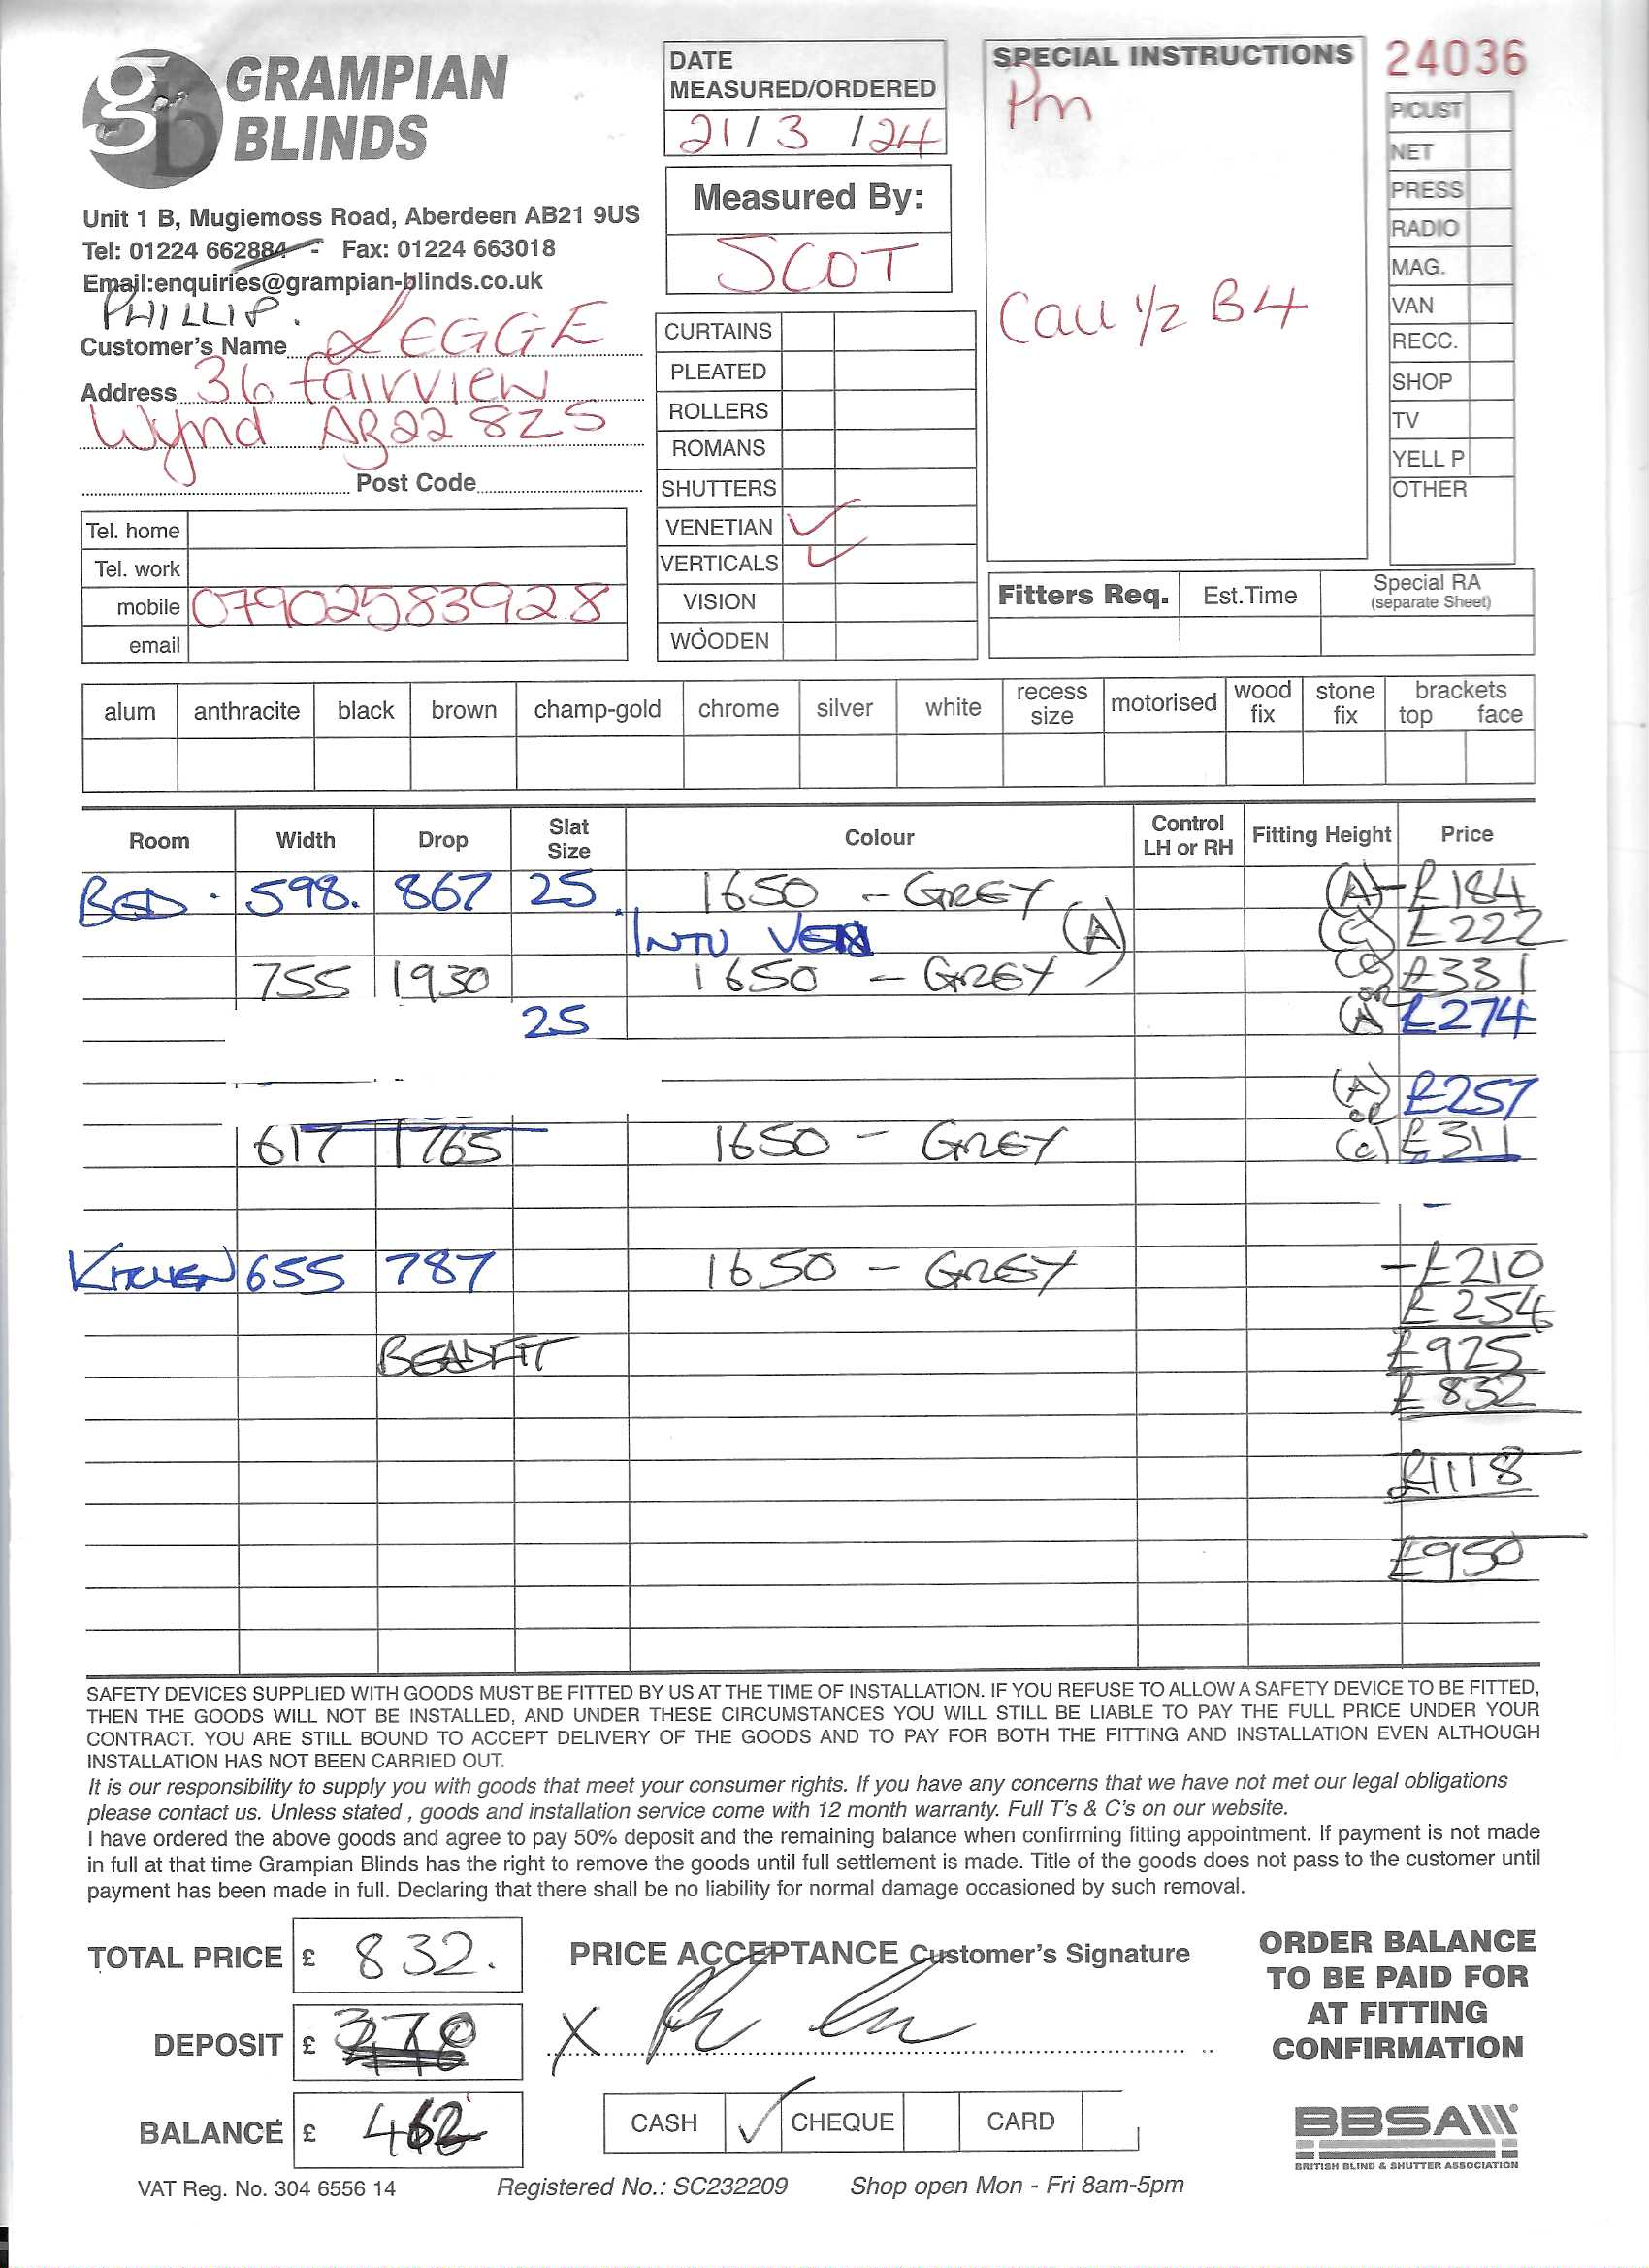 GRAMPIAN
BLINDS
Unit 1 B, Mugiemoss Road, Aberdeen AB21 9US
Tel: 01224 662884 - Fax: 01224 663018
Email:enquiries@grampian-blinds.co.uk
PHILLIP.
Customer's Name LEGGE
Address 36 fairview
Wynd AB22 8ZS
Post Code
Tel. home
Tel. work
mobile 07902583928
email
DATE
MEASURED/ORDERED
21/3/24
Measured By:
SCOT
CURTAINS
PLEATED
ROLLERS
ROMANS
SHUTTERS
VENETIAN ✓
VERTICALS ✓
VISION
WOODEN
SPECIAL INSTRUCTIONS
Pm
Call 1/2 B4
24036
P/CUST
NET
PRESS
RADIO
MAG.
VAN
RECC.
SHOP
TV
YELL P
OTHER
Fitters Req. Est.Time Special RA
(separate Sheet)
alum anthracite black brown champ-gold chrome silver white recess size motorised wood fix stone fix brackets top face
Room Width Drop Slat Size Colour Control LH or RH Fitting Height Price
BED. 598. 867 25 1650 - GREY (A) - £184
INTU VEN (A) (C) £222
755 1930 1650 - GREY (C) £331
25 or (A) £274
(A) £257
or
617 1765 1650 - GREY (C) £311
KITCHEN 655 787 1650 - GREY - £210
£254
BEADFIT £925
£832
£1118
£950
SAFETY DEVICES SUPPLIED WITH GOODS MUST BE FITTED BY US AT THE TIME OF INSTALLATION. IF YOU REFUSE TO ALLOW A SAFETY DEVICE TO BE FITTED,
THEN THE GOODS WILL NOT BE INSTALLED, AND UNDER THESE CIRCUMSTANCES YOU WILL STILL BE LIABLE TO PAY THE FULL PRICE UNDER YOUR
CONTRACT. YOU ARE STILL BOUND TO ACCEPT DELIVERY OF THE GOODS AND TO PAY FOR BOTH THE FITTING AND INSTALLATION EVEN ALTHOUGH
INSTALLATION HAS NOT BEEN CARRIED OUT.
It is our responsibility to supply you with goods that meet your consumer rights. If you have any concerns that we have not met our legal obligations
please contact us. Unless stated , goods and installation service come with 12 month warranty. Full T's & C's on our website.
I have ordered the above goods and agree to pay 50% deposit and the remaining balance when confirming fitting appointment. If payment is not made
in full at that time Grampian Blinds has the right to remove the goods until full settlement is made. Title of the goods does not pass to the customer until
payment has been made in full. Declaring that there shall be no liability for normal damage occasioned by such removal.
TOTAL PRICE £ 832.
DEPOSIT £
BALANCE £
PRICE ACCEPTANCE Customer's Signature
X
CASH ✓ CHEQUE CARD
ORDER BALANCE
TO BE PAID FOR
AT FITTING
CONFIRMATION
BBSA
BRITISH BLIND & SHUTTER ASSOCIATION
VAT Reg. No. 304 6556 14 Registered No.: SC232209 Shop open Mon - Fri 8am-5pm